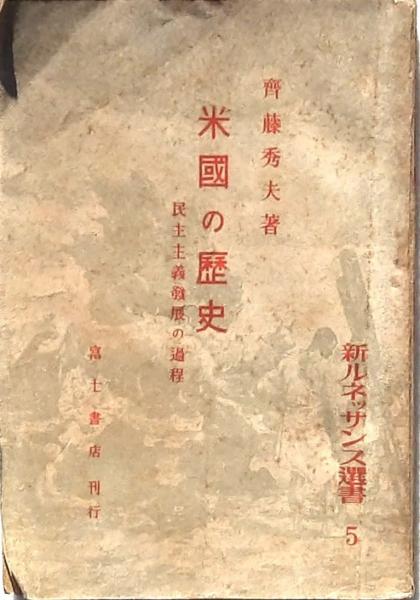 新ルネッサンス選書 5
齊藤秀夫著
米國の歴史
民主主義發展の過程
富士書店刊行